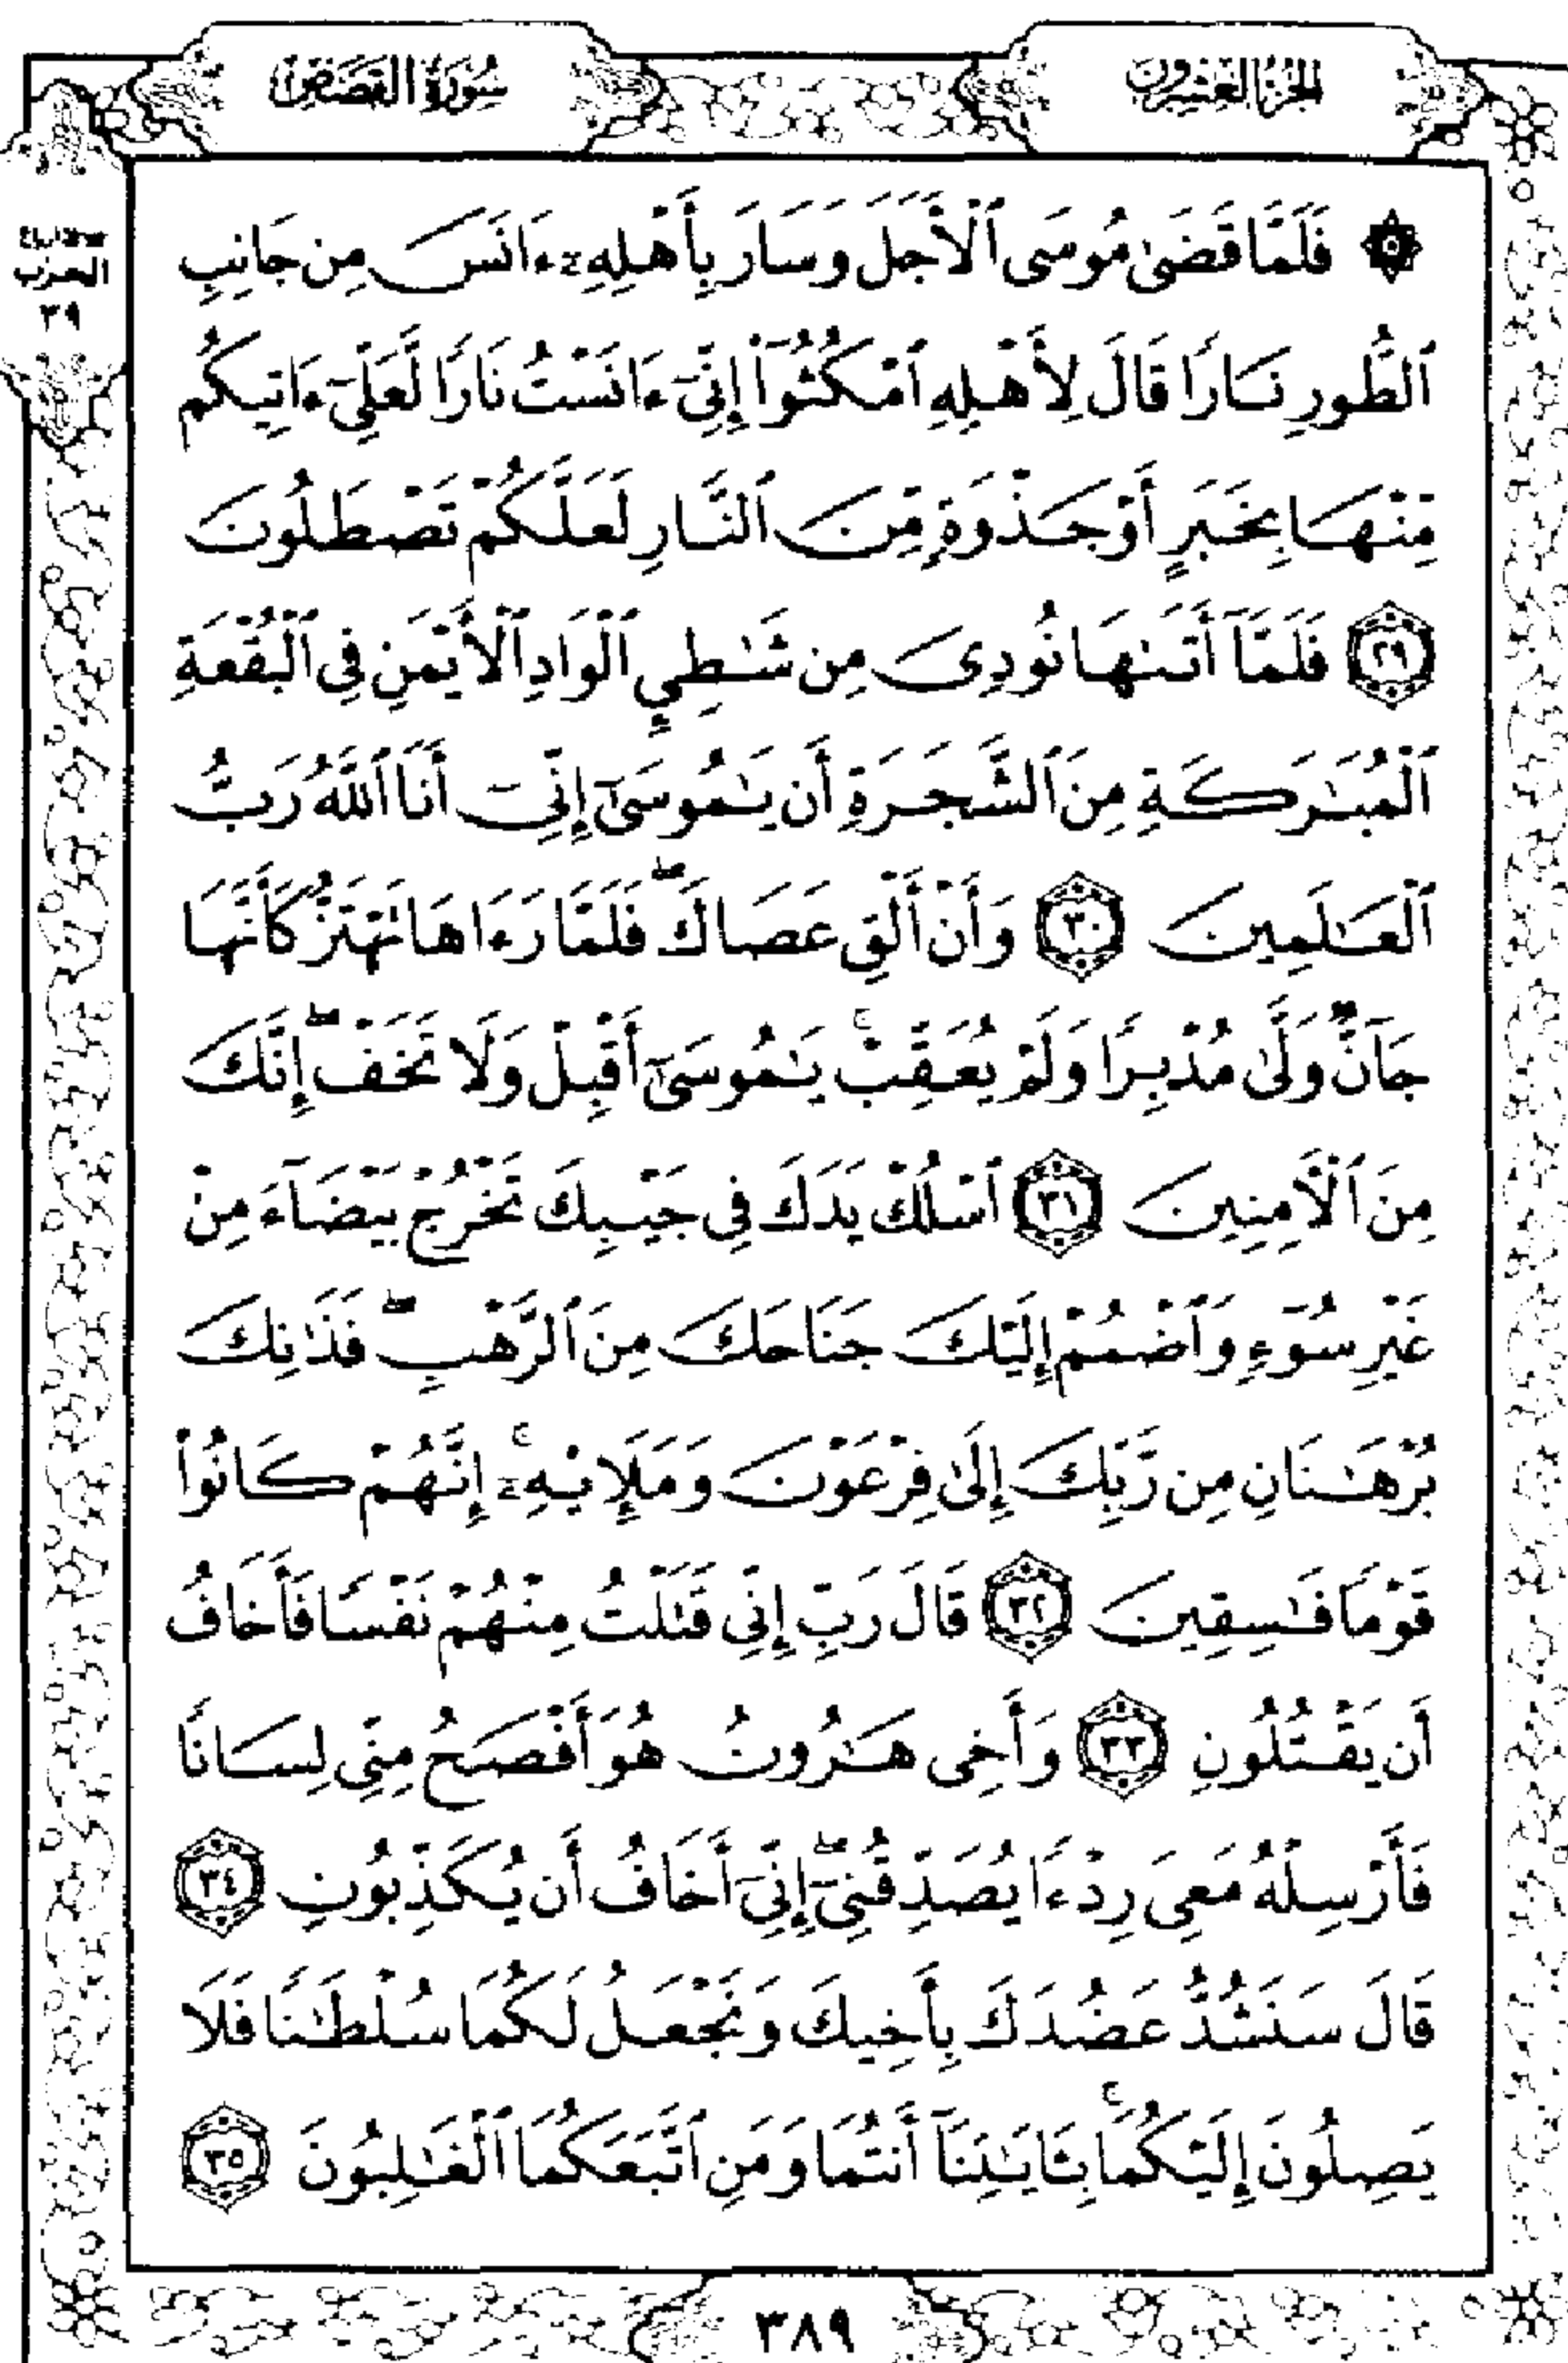 الجزء العشرون
سورة القصص
الحزب
٣٩
۞ فَلَمَّا قَضَىٰ مُوسَى ٱلْأَجَلَ وَسَارَ بِأَهْلِهِۦٓ ءَانَسَ مِن جَانِبِ
ٱلطُّورِ نَارًا قَالَ لِأَهْلِهِ ٱمْكُثُوٓا۟ إِنِّىٓ ءَانَسْتُ نَارًا لَّعَلِّىٓ ءَاتِيكُم
مِّنْهَا بِخَبَرٍ أَوْ جَذْوَةٍ مِّنَ ٱلنَّارِ لَعَلَّكُمْ تَصْطَلُونَ
﴿٢٩﴾ فَلَمَّآ أَتَىٰهَا نُودِىَ مِن شَٰطِئِ ٱلْوَادِ ٱلْأَيْمَنِ فِى ٱلْبُقْعَةِ
ٱلْمُبَٰرَكَةِ مِنَ ٱلشَّجَرَةِ أَن يَٰمُوسَىٰٓ إِنِّىٓ أَنَا ٱللَّهُ رَبُّ
ٱلْعَٰلَمِينَ ﴿٣٠﴾ وَأَنْ أَلْقِ عَصَاكَ ۖ فَلَمَّا رَءَاهَا تَهْتَزُّ كَأَنَّهَا
جَآنٌّ وَلَّىٰ مُدْبِرًا وَلَمْ يُعَقِّبْ ۚ يَٰمُوسَىٰٓ أَقْبِلْ وَلَا تَخَفْ ۖ إِنَّكَ
مِنَ ٱلْءَامِنِينَ ﴿٣١﴾ ٱسْلُكْ يَدَكَ فِى جَيْبِكَ تَخْرُجْ بَيْضَآءَ مِنْ
غَيْرِ سُوٓءٍ وَٱضْمُمْ إِلَيْكَ جَنَاحَكَ مِنَ ٱلرَّهْبِ ۖ فَذَٰنِكَ
بُرْهَٰنَانِ مِن رَّبِّكَ إِلَىٰ فِرْعَوْنَ وَمَلَإِي۟هِۦٓ ۚ إِنَّهُمْ كَانُوا۟
قَوْمًا فَٰسِقِينَ ﴿٣٢﴾ قَالَ رَبِّ إِنِّى قَتَلْتُ مِنْهُمْ نَفْسًا فَأَخَافُ
أَن يَقْتُلُونِ ﴿٣٣﴾ وَأَخِى هَٰرُونُ هُوَ أَفْصَحُ مِنِّى لِسَانًا
فَأَرْسِلْهُ مَعِىَ رِدْءًا يُصَدِّقُنِىٓ ۖ إِنِّىٓ أَخَافُ أَن يُكَذِّبُونِ ﴿٣٤﴾
قَالَ سَنَشُدُّ عَضُدَكَ بِأَخِيكَ وَنَجْعَلُ لَكُمَا سُلْطَٰنًا فَلَا
يَصِلُونَ إِلَيْكُمَا ۚ بِـَٔايَٰتِنَآ أَنتُمَا وَمَنِ ٱتَّبَعَكُمَا ٱلْغَٰلِبُونَ ﴿٣٥﴾
٣٨٩